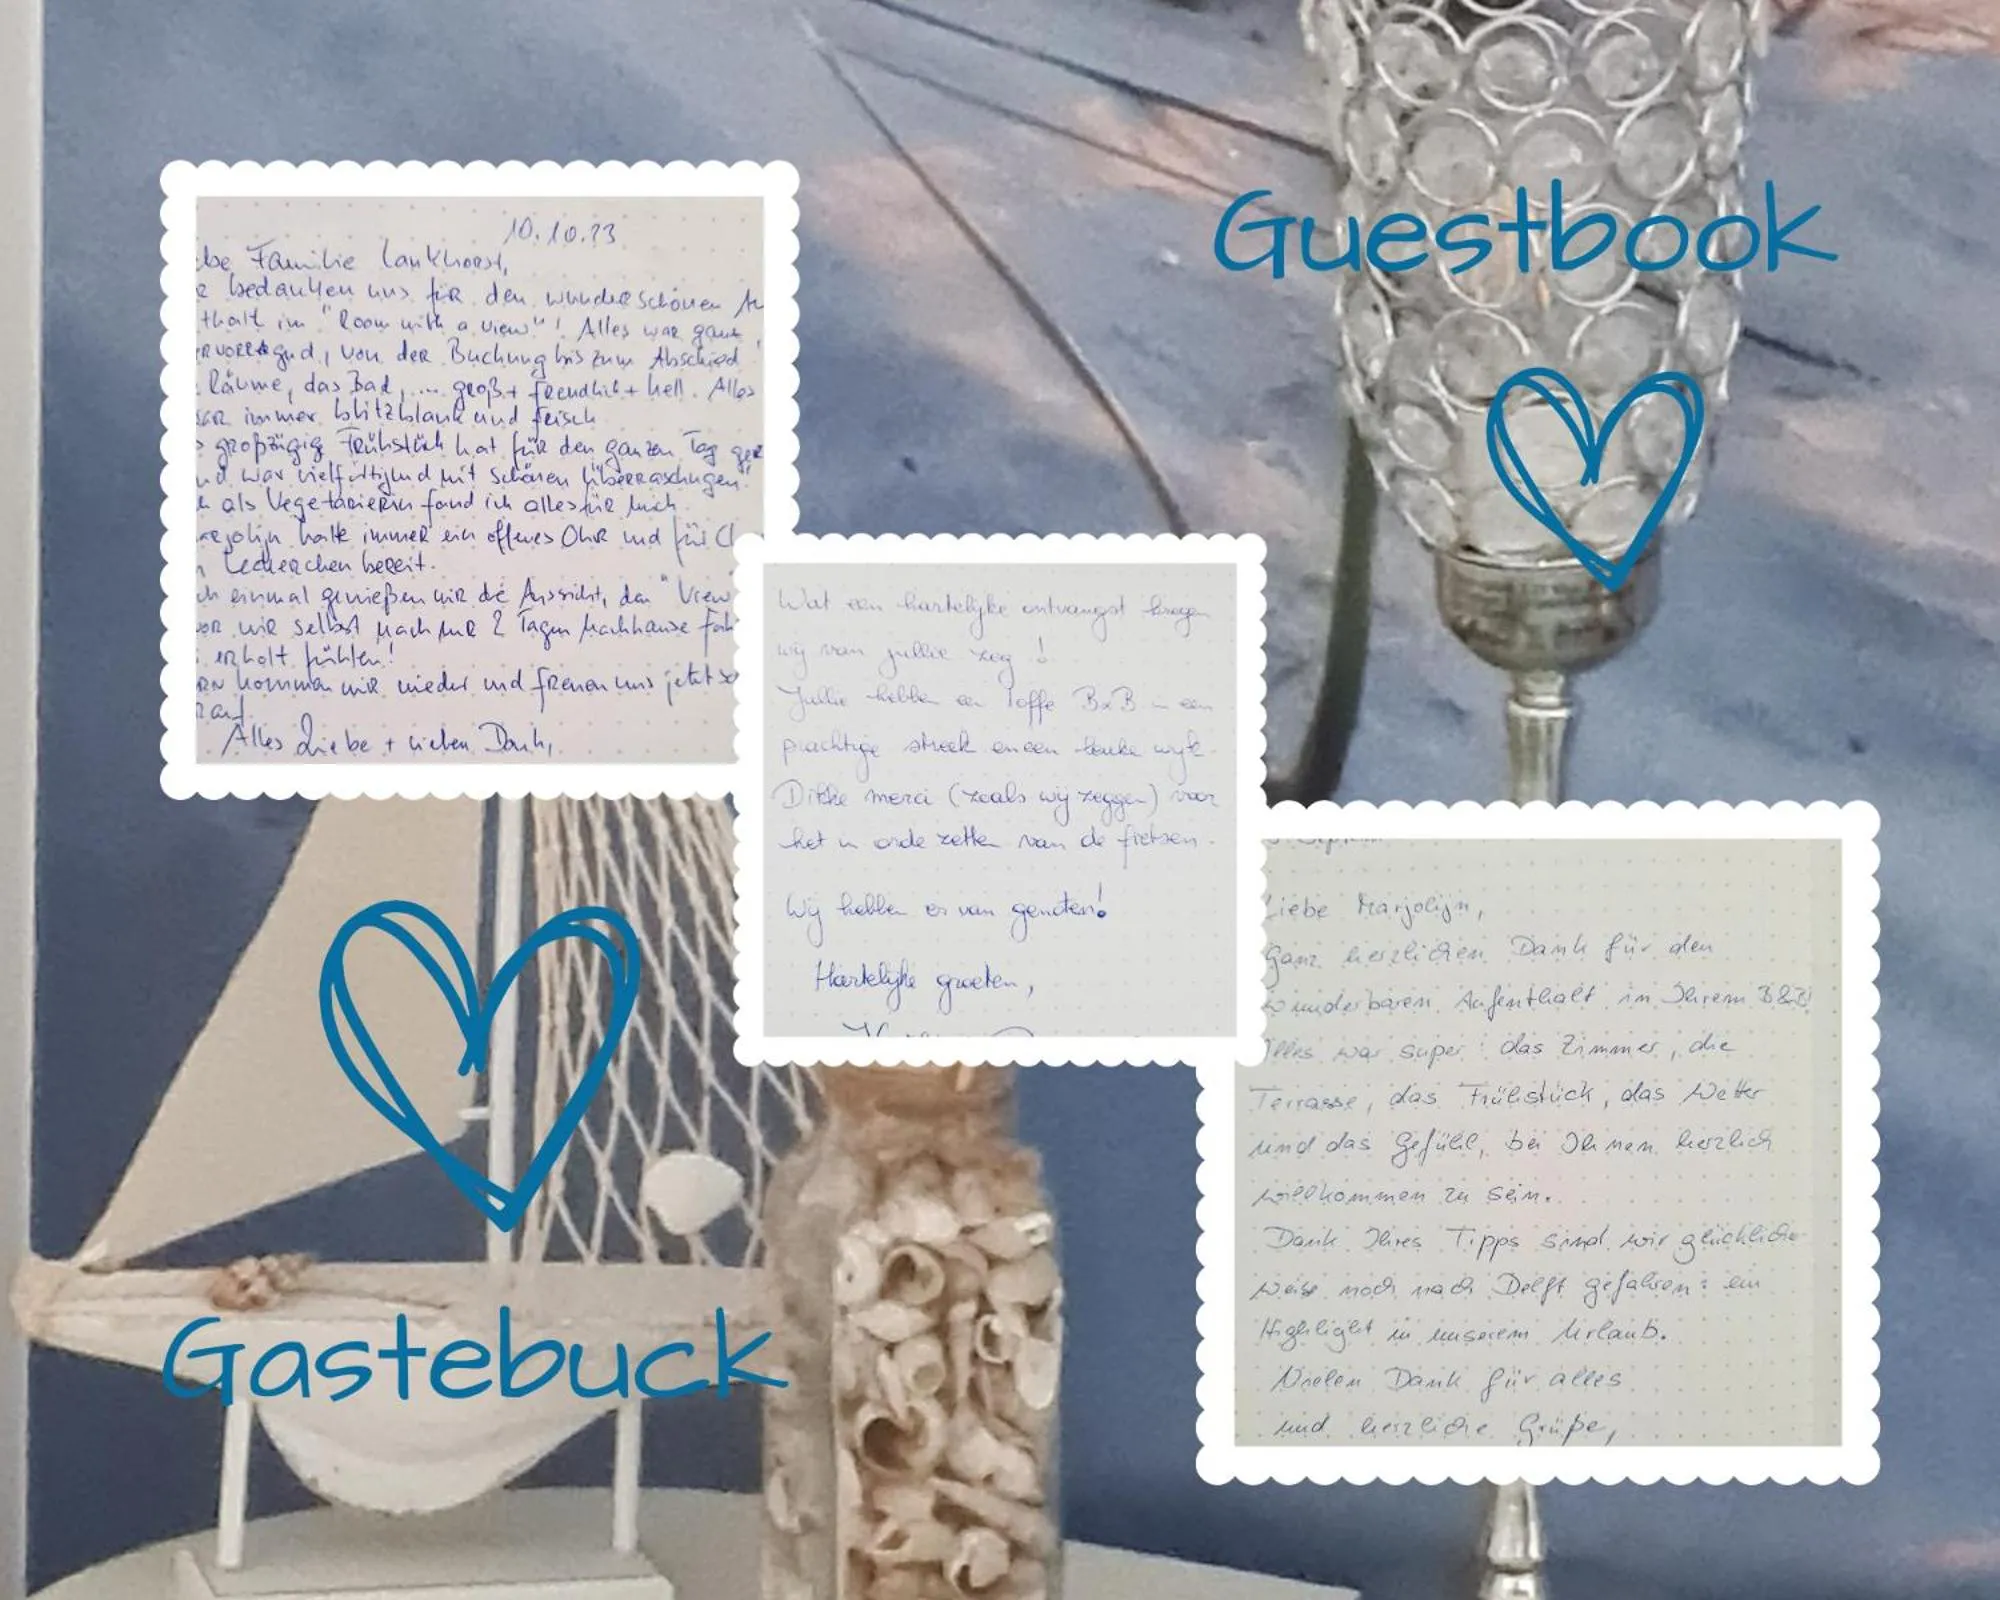 Guestbook
10.10.23
be Familie Lankhorst,
bedanken uns für den wunderschönen Au
thalt im "Room with a view"! Alles war ganz
ervorragnd, von der Buchung bis zum Abschied
Räume, das Bad, .... groß + freundlich + hell. Alles
war immer blitzblank und frisch
großzügig Frühstück hat für den ganzen Tag ger
nd war vielfältig und mit schönen Überraschungen!
h als Vegetarierin fand ich alles für mich.
arjolijn hatte immer ein offenes Ohr und für
Recherchen bereit.
ch einmal genießen wir die Aussicht, den "View
vor wir selbst nach nur 2 Tagen nachhause fah
erholt fühlen!
kommen wir wieder und freuen uns jetzt so
rauf.
Alles Liebe + lieben Dank,
Wat een hartelijke ontvangst kregen
wij van jullie zeg!
Jullie hebben een toffe B&B in een
prachtige streek en een leuke wijk.
Dikke merci (zoals wij zeggen) voor
het in orde zetten van de fietsen.
Wij hebben er van genoten!
Hartelijke groeten,
Liebe Marjolijn,
Ganz herzlichen Dank für den
wunderbaren Aufenthalt in Ihrem B&B!
Alles war super: das Zimmer, die
Terrasse, das Frühstück, das Wetter
und das Gefühl, bei Ihnen herzlich
willkommen zu sein.
Dank Ihres Tipps sind wir glücklicher
weise noch nach Delft gefahren: ein
Highlight in unserem Urlaub.
Vielen Dank für alles
und herzliche Grüße,
Gastebuck